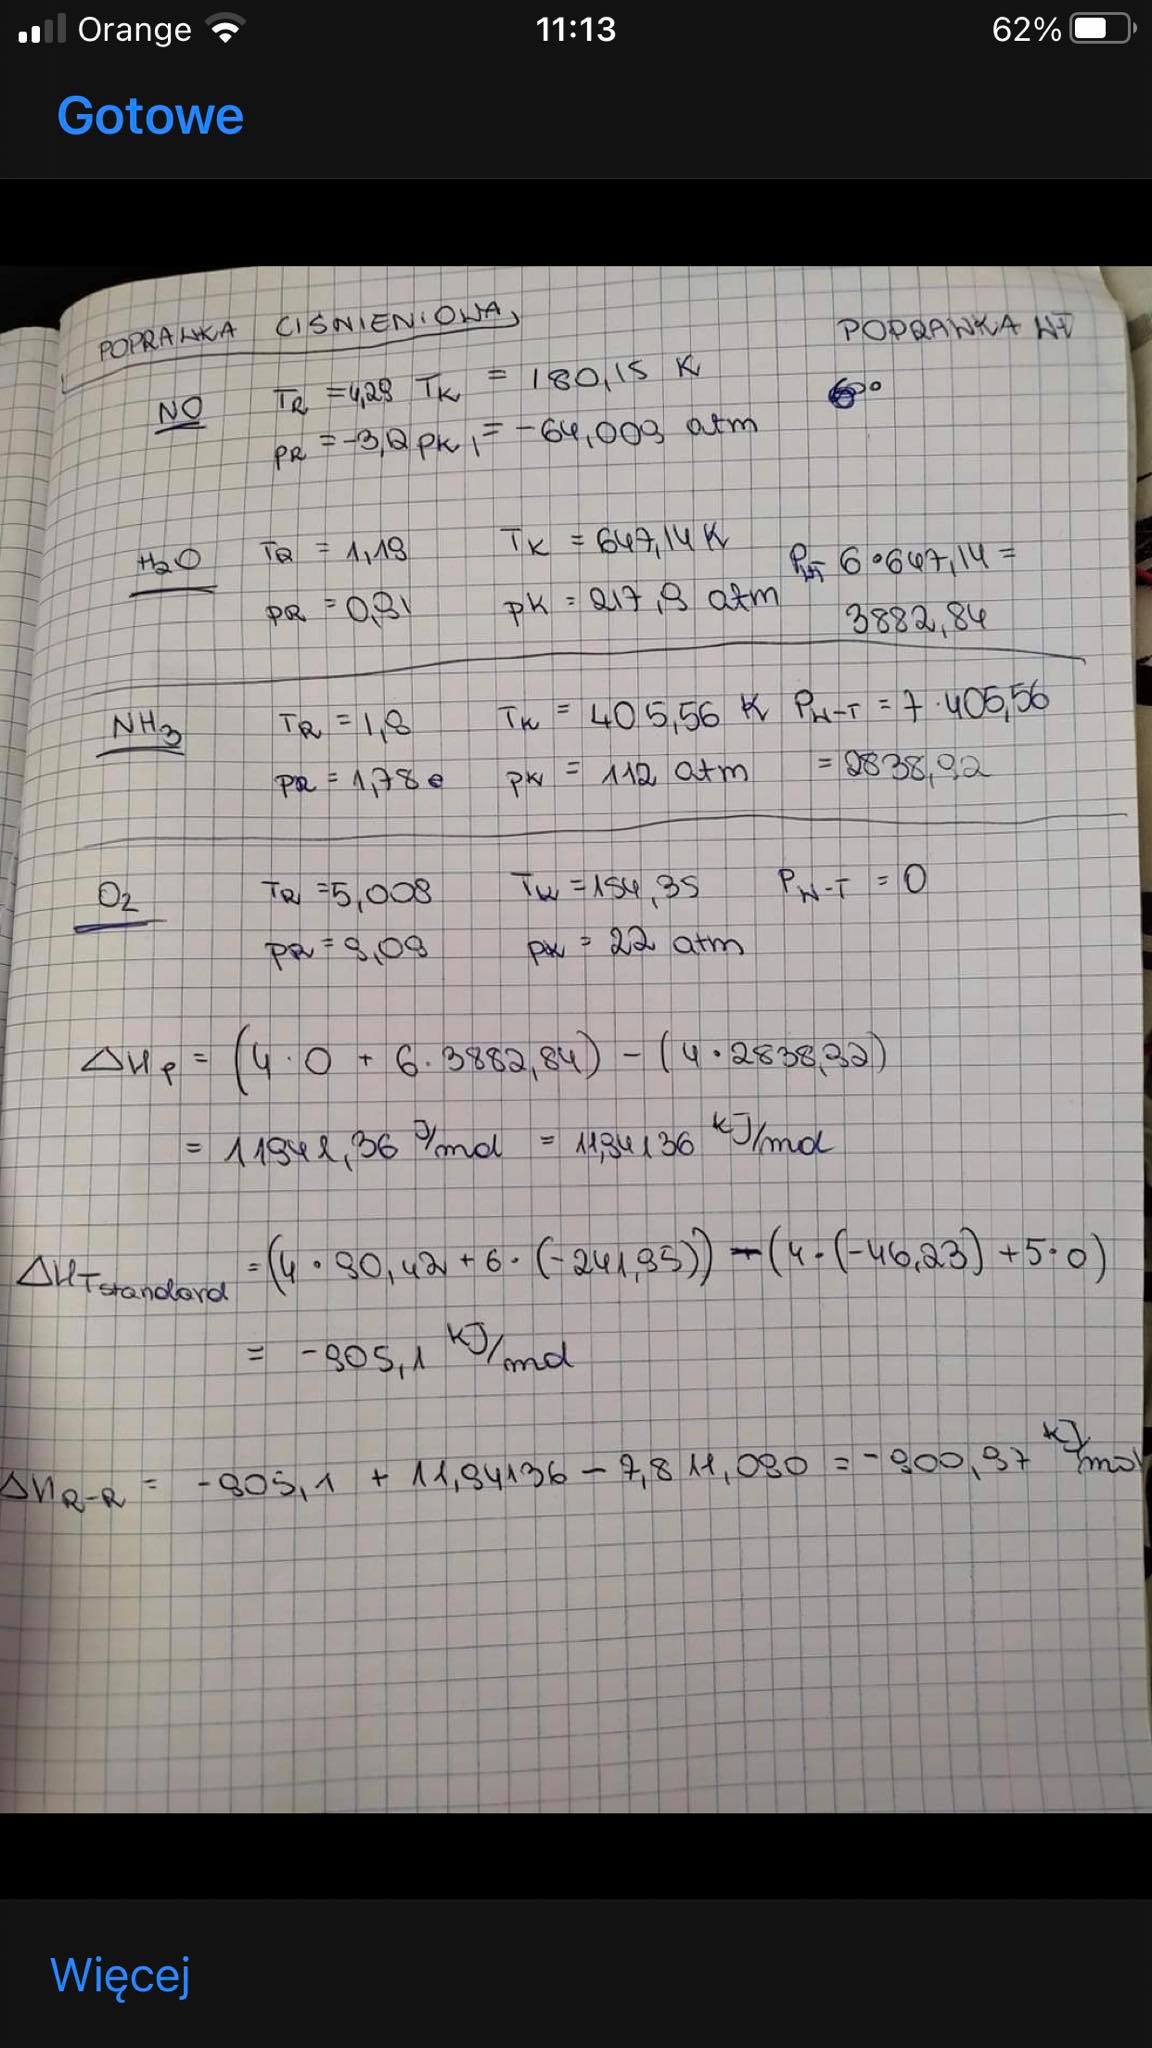 Orange 11:13 62%
Gotowe
POPRAWKA CIŚNIENIOWA
POPRAWKA WT
NO TR = 4,29 TK = 180,15 K
pR = -3,2 pK = -64,009 atm
H2O TR = 1,19 TK = 647,14 K
PWT 6•647,14 =
pR = 0,91 pK = 217,9 atm 3882,84
NH3 TR = 1,8 TK = 405,56 K PW-T = 7·405,56
pR = 1,78 pK = 112 atm = 2838,92
O2 TR = 5,008 TK = 154,35 PW-T = 0
pR = 9,09 pK = 22 atm
ΔHp = (4·0 + 6·3882,84) - (4·2838,92)
= 11941,36 J/mol = 11,94136 kJ/mol
ΔHTstandard = (4·90,42 + 6·(-241,95)) - (4·(-46,23) + 5·0)
= -905,1 kJ/mol
ΔHR-R = -905,1 + 11,94136 - 7,811,090 = -900,97 kJ/mol
Więcej